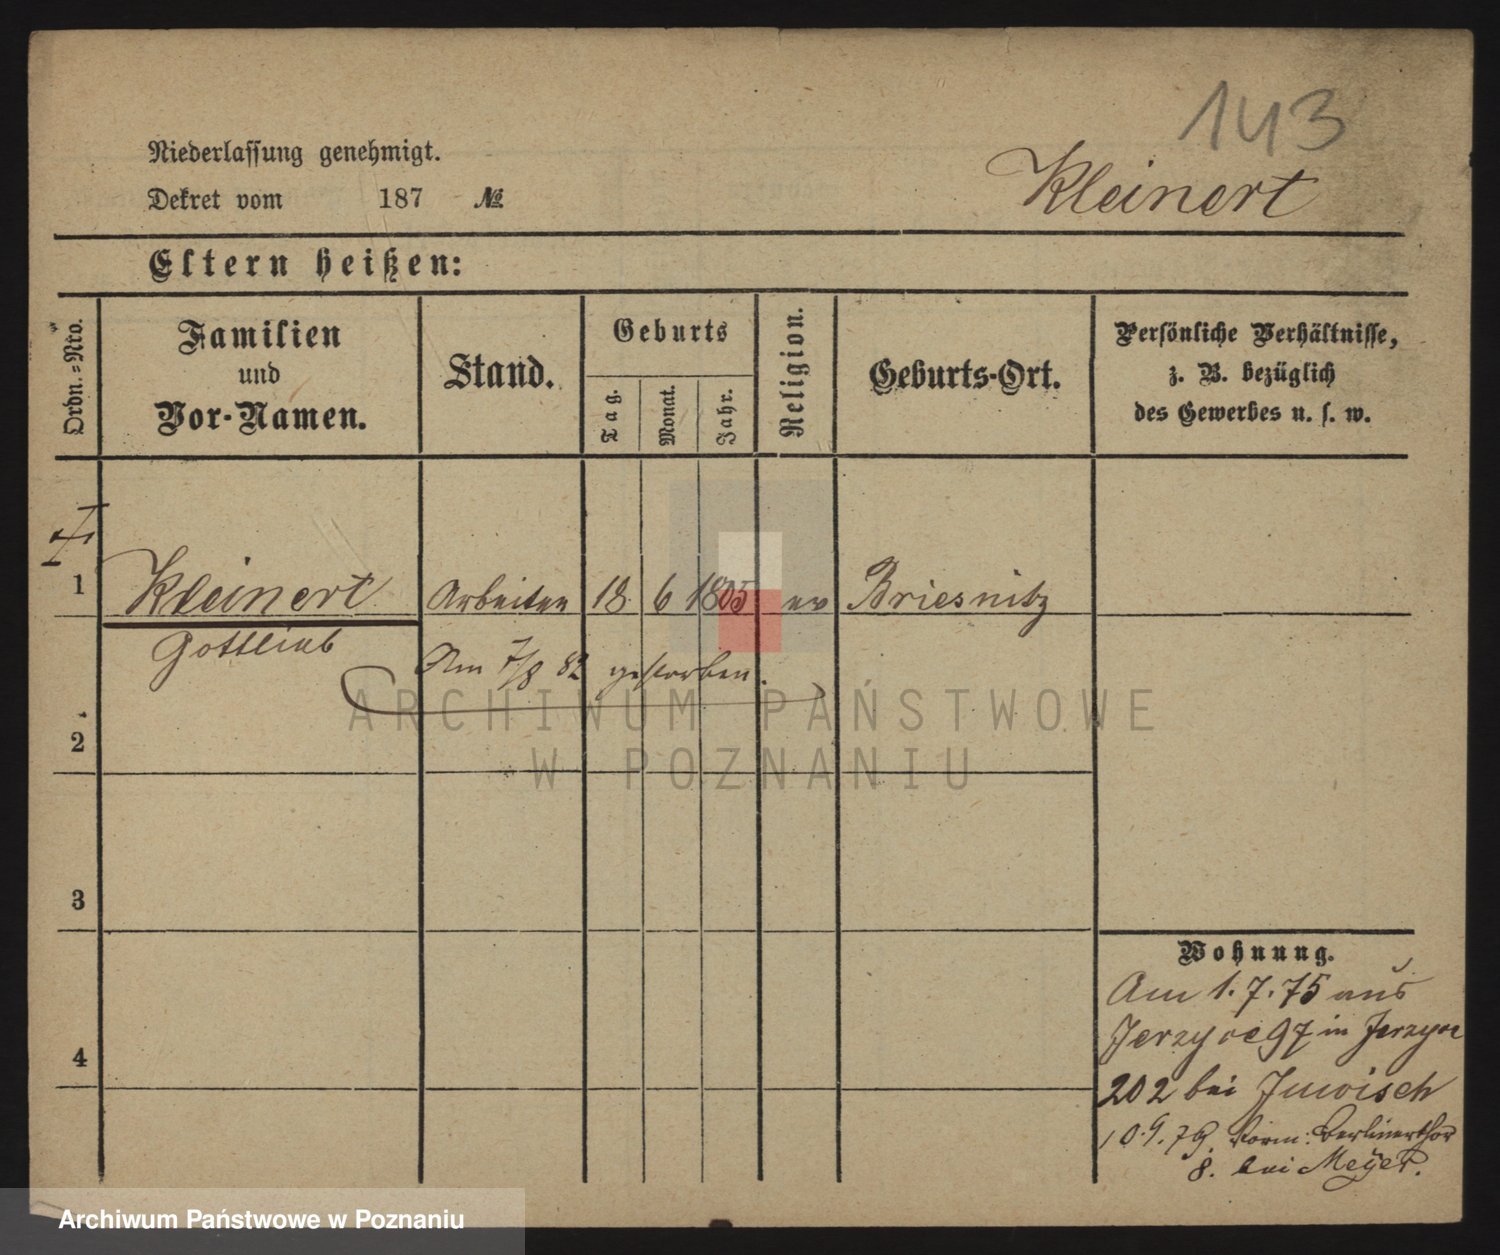 143
Kleinert
Niederlassung genehmigt.
Dekret vom 187 №
Eltern heißen:
Ordn.=Nro.
Familien
und
Vor-Namen.
Stand.
Geburts
Tag.
Monat.
Jahr.
Religion.
Geburts-Ort.
Persönliche Verhältnisse,
z. B. bezüglich
des Gewerbes u. s. w.
1 Kleinert Arbeiter 18 6 1805 ev Briesnitz
Gottlieb
Am 7/8 82 gestorben.
2
3
4
Wohnung.
Am 1.7.75 aus
Jerzyce 97 in Jerzyce
202 bei
10.9.79. Berlinerthor
8. bei Meyer.
ARCHIWUM PAŃSTWOWE
W POZNANIU
Archiwum Państwowe w Poznaniu